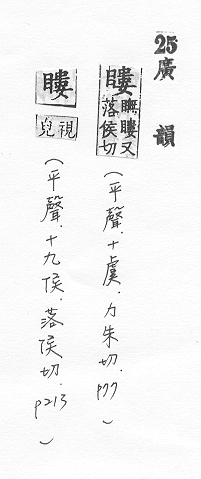 25廣韻
瞜瞴瞜又落侯切(平聲.十虞.力朱切.p77)
瞜視皃(平聲.十九侯.落侯切.p213)